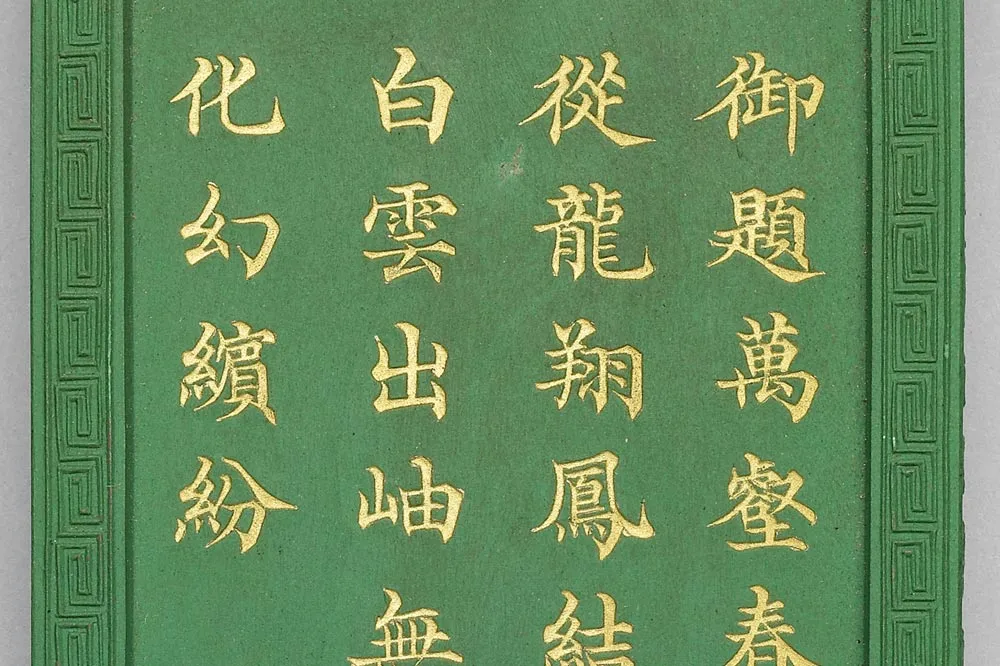 御題萬壑春
從龍翔鳳結
白雲出岫無
化幻繽紛